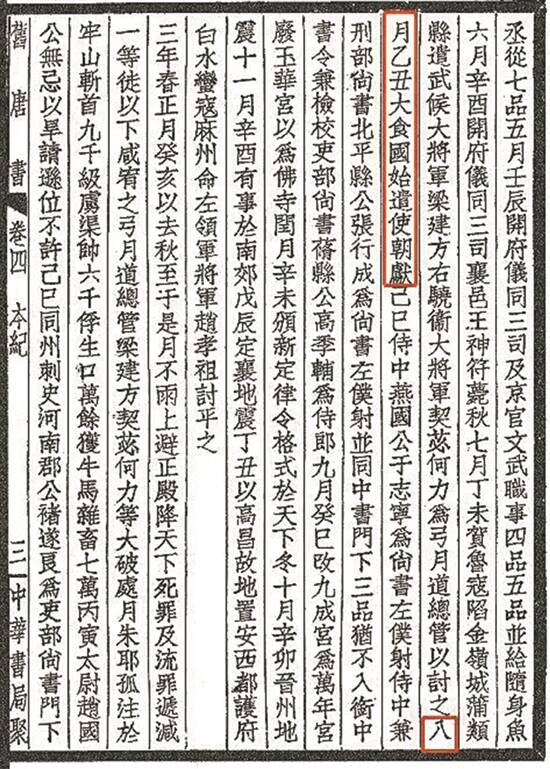 丞從七品五月壬辰開府儀同三司及京官文武職事四品五品並給隨身魚
六月辛酉開府儀同三司襄邑王神符薨秋七月丁未賀魯寇陷金嶺城蒲類
縣遣武候大將軍梁建方右驍衞大將軍契苾何力為弓月道總管以討之八
月乙丑大食國始遣使朝獻己巳侍中燕國公于志寧為尚書左僕射侍中兼
刑部尚書北平縣公張行成為尚書左僕射並同中書門下三品猶不入銜中
書令兼檢校吏部尚書蓨縣公高季輔為侍郎九月癸巳改九成宮為萬年宮
廢玉華宮以為佛寺閏月辛未頒新定律令格式於天下冬十月辛卯晉州地
震十一月辛酉有事於南郊戊辰定襄地震丁丑以高昌故地置安西都護府
白水蠻寇麻州命左領軍將軍趙孝祖討平之
三年春正月癸亥以去秋至于是月不雨上避正殿降天下死罪及流罪遞減
一等徒以下咸宥之弓月道總管梁建方契苾何力等大破處月朱耶孤注於
牢山斬首九千級虜渠帥六千俘生口萬餘獲牛馬雜畜七萬丙寅太尉趙國
公無忌以旱請遜位不許己巳同州刺史河南郡公褚遂良為吏部尚書門下
舊唐書 卷四 本紀 三 中華書局聚